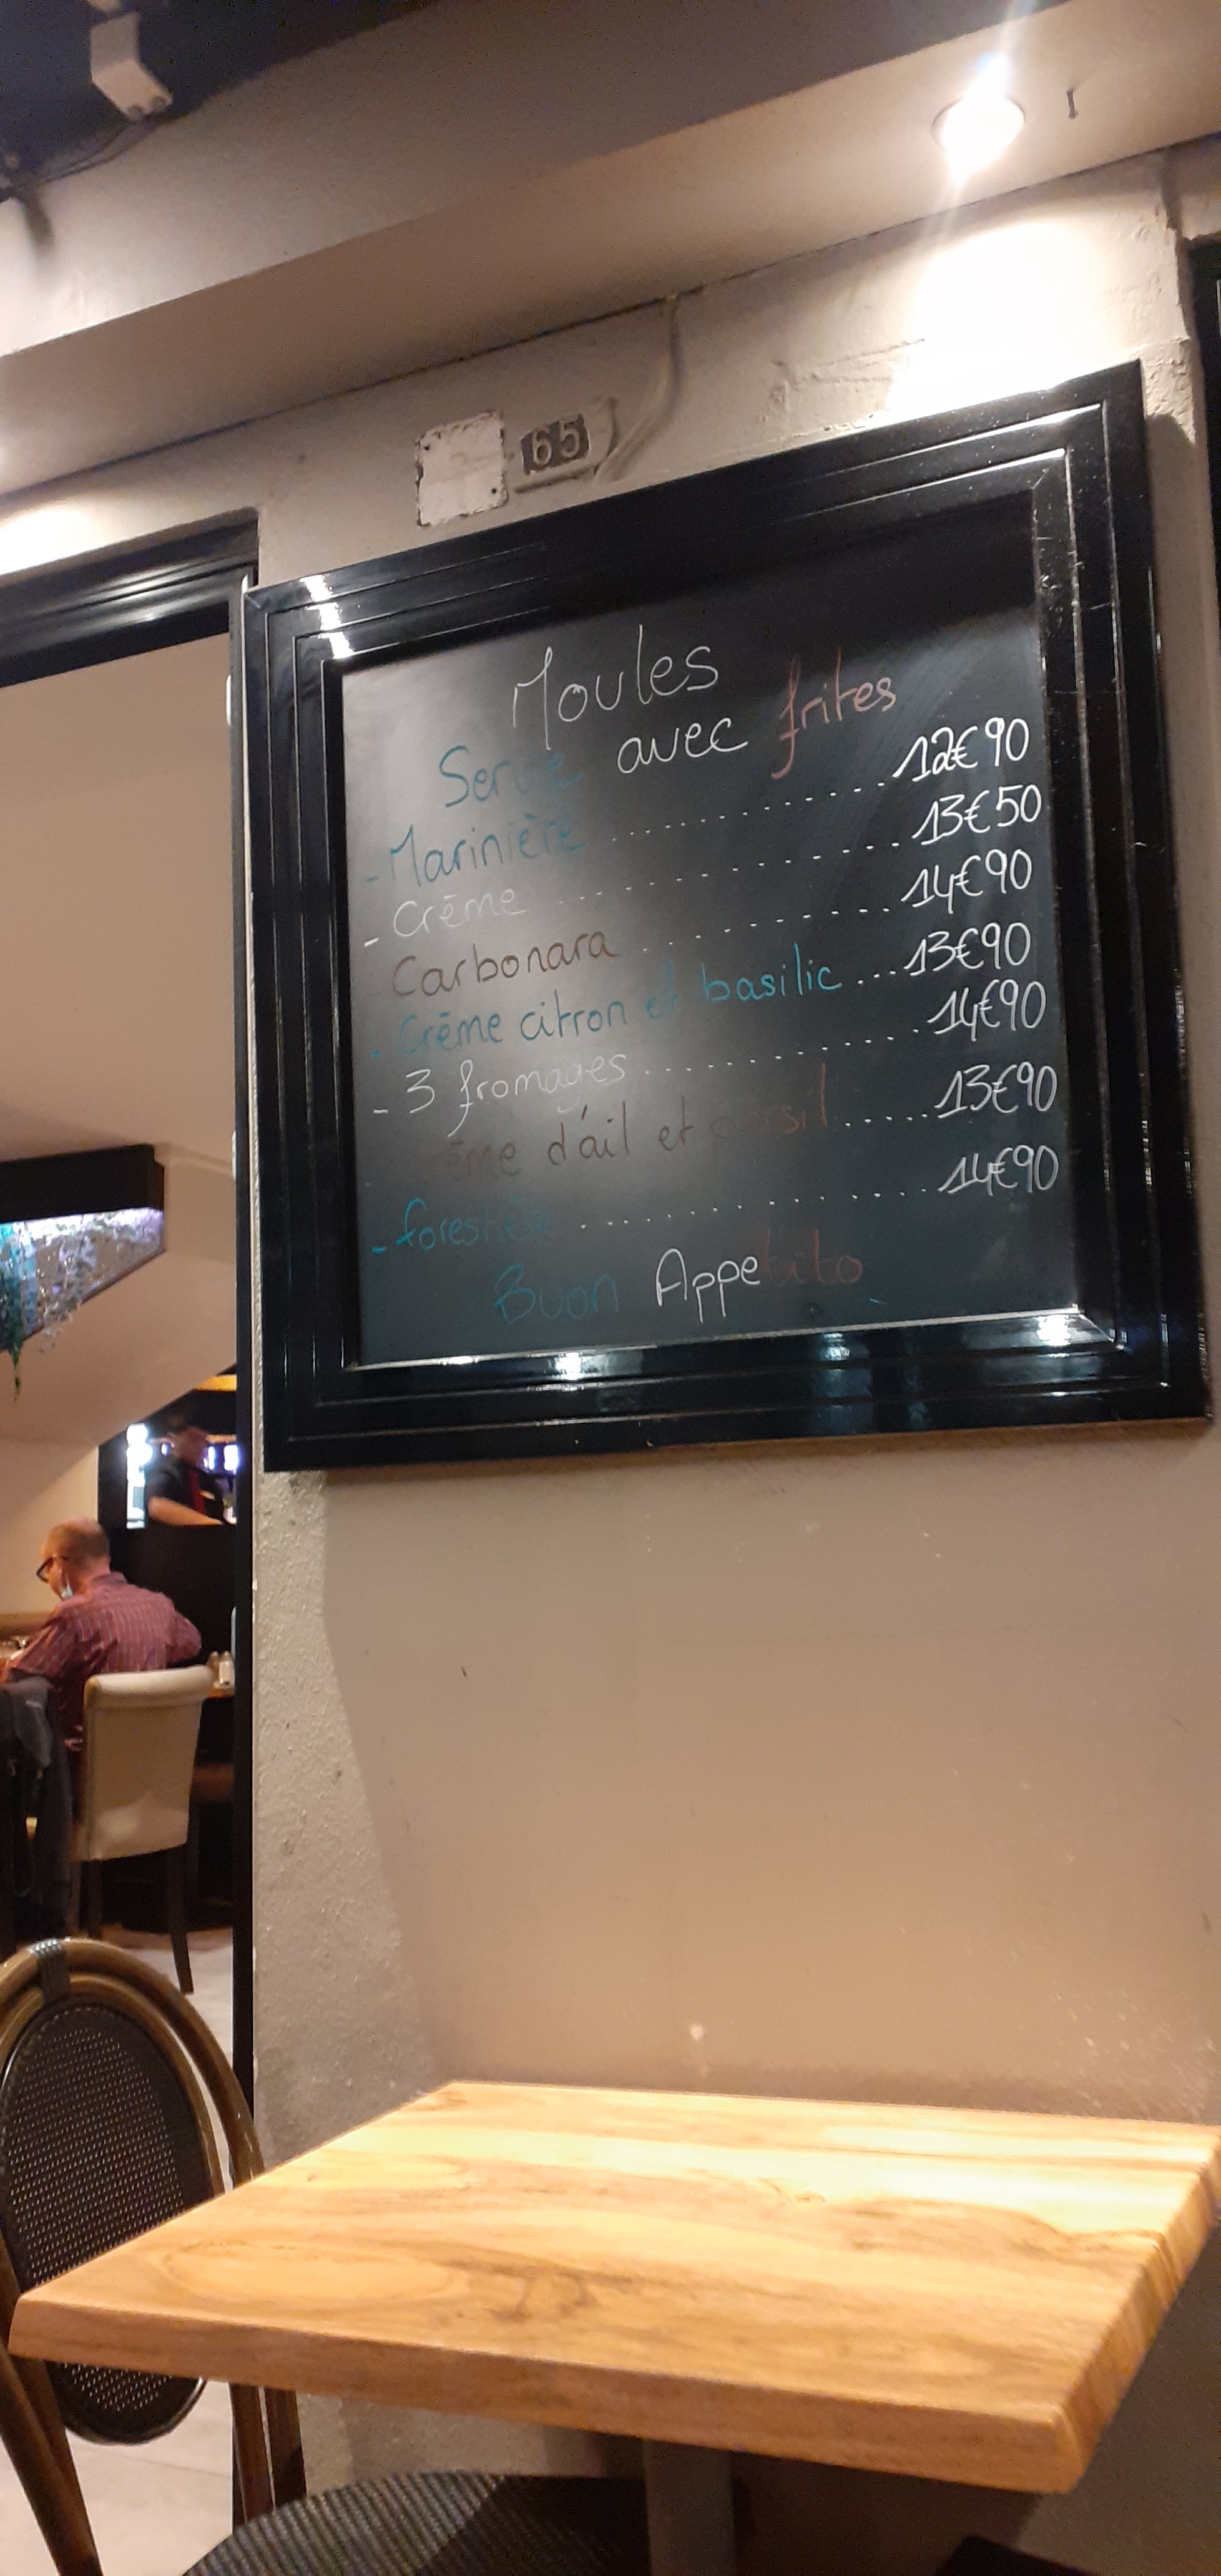 65
Moules
Servie avec frites
- Marinière .............. 12€90
- Crème .............. 13€50
Carbonara .......... 14€90
- Crème citron et basilic ... 13€90
- 3 fromages .............. 14€90
d'ail et persil ...... 13€90
- forestière .............. 14€90
Buon Appetito